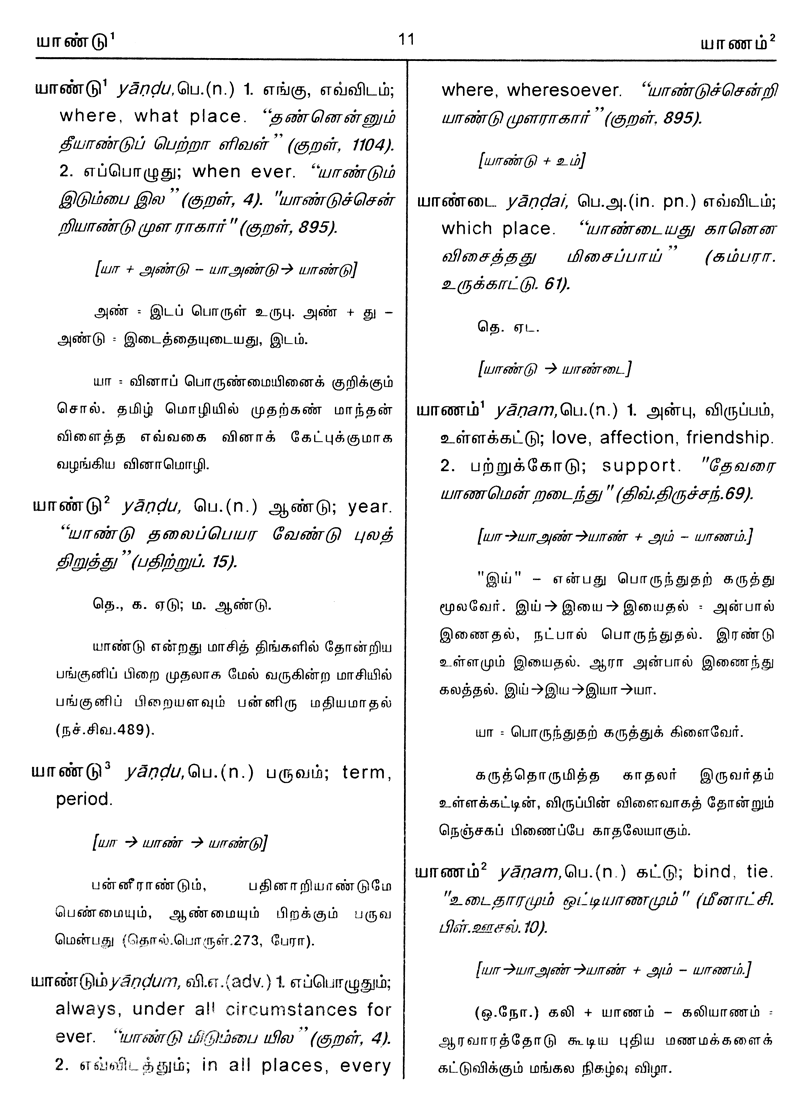 யாண்டு¹
11
யாணம்²
யாண்டு¹ yāṇḍu,பெ.(n.) 1. எங்கு, எவ்விடம்;
where, what place. “தண்னென்னும்
தீயாண்டுப் பெற்றா ளிவள்” (குறள், 1104).
2. எப்பொழுது; when ever. “யாண்டும்
இடும்பை இல” (குறள், 4). "யாண்டுச்சென்
றியாண்டு முள ராகார்" (குறள், 895).
[யா + அண்டு – யாஅண்டு→ யாண்டு]
அண் = இடப் பொருள் உருபு. அண் + து –
அண்டு = இடைத்தையுடையது, இடம்.
யா = வினாப் பொருண்மையினைக் குறிக்கும்
சொல். தமிழ் மொழியில் முதற்கண் மாந்தன்
விளைத்த எவ்வகை வினாக் கேட்புக்குமாக
வழங்கிய வினாமொழி.
யாண்டு² yāṇḍu, பெ.(n.) ஆண்டு; year.
“யாண்டு தலைப்பெயர வேண்டு புலத்
திறுத்து”(பதிற்றுப். 15).
தெ., க. ஏடு; ம. ஆண்டு.
யாண்டு என்றது மாசித் திங்களில் தோன்றிய
பங்குனிப் பிறை முதலாக மேல் வருகின்ற மாசியில்
பங்குனிப் பிறையளவும் பன்னிரு மதியமாதல்
(நச்.சிவ.489).
யாண்டு³ yāṇḍu,பெ.(n.) பருவம்; term,
period.
[யா → யாண் → யாண்டு]
பன்னீராண்டும், பதினாறியாண்டுமே
பெண்மையும், ஆண்மையும் பிறக்கும் பருவ
மென்பது (தொல்.பொருள்.273, பேரா).
யாண்டும் yāṇḍum, வி.எ.(adv.) 1. எப்பொழுதும்;
always, under all circumstances for
ever. “யாண்டு மிடும்பை யில”(குறள், 4).
2. எவ்விடத்தும்; in all places, every
where, wheresoever. “யாண்டுச்சென்றி
யாண்டு முளராகார்”(குறள், 895).
[யாண்டு + உம்]
யாண்டை yāṇḍai, பெ.அ.(in. pn.) எவ்விடம்;
which place. “யாண்டையது கானென
விசைத்தது மிசைப்பாய்” (கம்பரா.
உருக்காட்டு. 61).
தெ. ஏட.
[யாண்டு → யாண்டை]
யாணம்¹ yāṇam,பெ.(n.) 1. அன்பு, விருப்பம்,
உள்ளக்கட்டு; love, affection, friendship.
2. பற்றுக்கோடு; support. "தேவரை
யாணமென் றடைந்து" (திவ்.திருச்சந்.69).
[யா→யாஅண்→யாண் + அம் – யாணம்.]
"இய்" – என்பது பொருந்துதற் கருத்து
மூலவேர். இய்→இயை→இயைதல் = அன்பால்
இணைதல், நட்பால் பொருந்துதல். இரண்டு
உள்ளமும் இயைதல். ஆரா அன்பால் இணைந்து
கலத்தல். இய்→இய→இயா→யா.
யா = பொருந்துதற் கருத்துக் கிளைவேர்.
கருத்தொருமித்த காதலர் இருவர்தம்
உள்ளக்கட்டின், விருப்பின் விளைவாகத் தோன்றும்
நெஞ்சகப் பிணைப்பே காதலேயாகும்.
யாணம்² yāṇam,பெ.(n.) கட்டு; bind, tie.
"உடைதாரமும் ஒட்டியாணமும்" (மீனாட்சி.
பிள்.ஊசல்.10).
[யா→யாஅண்→யாண் + அம் – யாணம்.]
(ஒ.நோ.) கலி + யாணம் – கலியாணம் =
ஆரவாரத்தோடு கூடிய புதிய மணமக்களைக்
கட்டுவிக்கும் மங்கல நிகழ்வு விழா.